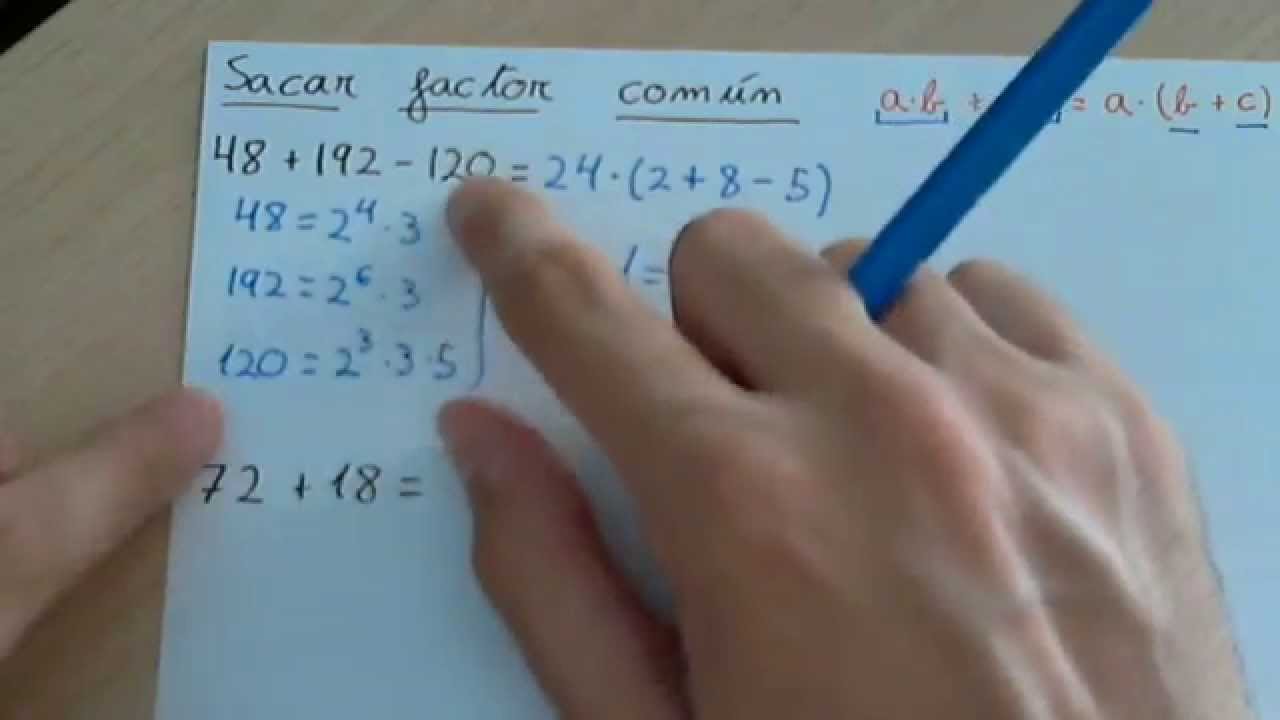 Sacar factor común a·b + = a·(b + c)
48 + 192 - 120 = 24·(2 + 8 - 5)
48 = 2⁴·3
192 = 2⁶·3
120 = 2³·3·5
72 + 18 =